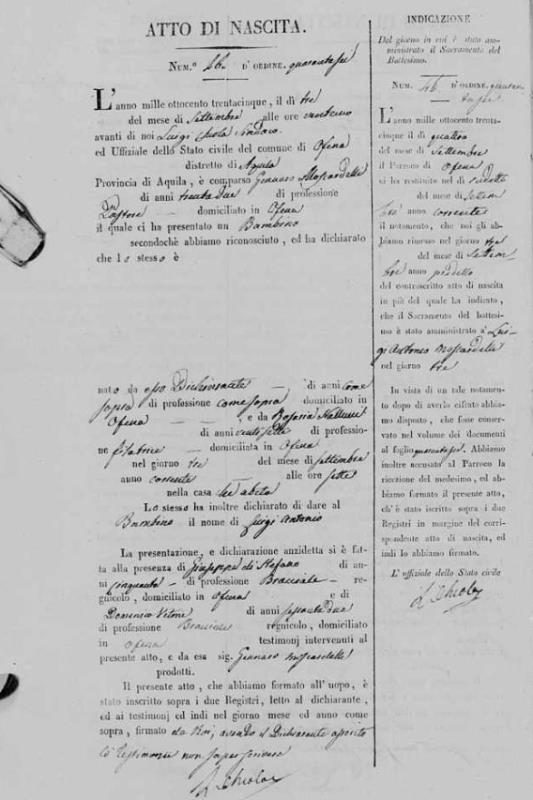 ATTO DI NASCITA.
Num.º 46. D'ORDINE quarantasei
L'anno mille ottocento trentacinque, il dì tre
del mese di Settembre alle ore
avanti di noi Luigi Sindaco
ed Uffiziale dello Stato civile del comune di Ofena
distretto di Aquila
Provincia di Aquila, è comparso Gennaro Moscardelli
di anni trentadue di professione
Pastore domiciliato in Ofena
il quale ci ha presentato un Bambino
secondochè abbiamo riconosciuto, ed ha dichiarato
che lo stesso è
nato da esso Dichiarante di anni come
sopra di professione come sopra domiciliato in
Ofena e da Rosaria
di anni ventisette di professio-
ne filatrice domiciliata in Ofena
nel giorno tre del mese di Settembre
anno corrente alle ore sette
nella casa ove abita
Lo stesso ha inoltre dichiarato di dare al
Bambino il nome di Luigi Antonio
La presentazione, e dichiarazione anzidetta si è fat-
ta alla presenza di Giuseppe di Stefano di an-
ni cinquanta di professione Bracciale re-
gnicolo, domiciliato in Ofena e di
Domenico di anni sessantadue
di professione Bracciale regnicolo, domiciliato
in Ofena testimonj intervenuti al
presente atto, e da esso sig. Gennaro Moscardelli
prodotti.
Il presente atto, che abbiamo formato all'uopo, è
stato inscritto sopra i due Registri, letto al dichiarante,
ed ai testimonj ed indi nel giorno mese ed anno come
sopra, firmato da Noi, avendo il Dichiarante
testimonj non saper scrivere
INDICAZIONE
Del giorno in cui è stato am-
ministrato il Sacramento del
Battesimo.
Num. 46. D'ORDINE quaran-
tasei
L'anno mille ottocento trenta-
cinque il dì quattro
del mese di Settembre
il Parroco di Ofena
ci ha restituito nel dì sudetto
del mese di Settem-
bre anno corrente
il notamento, che noi gli ab-
biamo rimesso nel giorno tre
del mese di Settem-
bre anno predetto
del controscritto atto di nascita
in piè del quale ha indicato,
che il Sacramento del battesi-
mo è stato amministrato a Lui-
gi Antonio Moscardelli
nel giorno tre
In vista di un tale notamento
dopo di averlo cifrato abbia-
mo disposto, che fose conser-
vato nel volume dei documenti
al foglio quarantasei. Abbiamo
inoltre accusato al Parroco la
ricezione del medesimo, ed ab-
biamo formato il presente atto,
ch'è stato iscritto sopra i due
Registri in margine del corri-
spondente atto di nascita, ed
indi lo abbiamo firmato.
L'uffiziale dello Stato civile